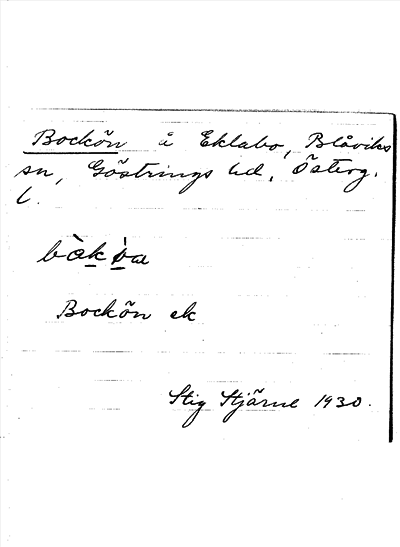 Bockön å Eklabo, Blåviks
sn, Göstrings hd, Österg.
l.
Bockön ek
Stig Stjärne 1930.